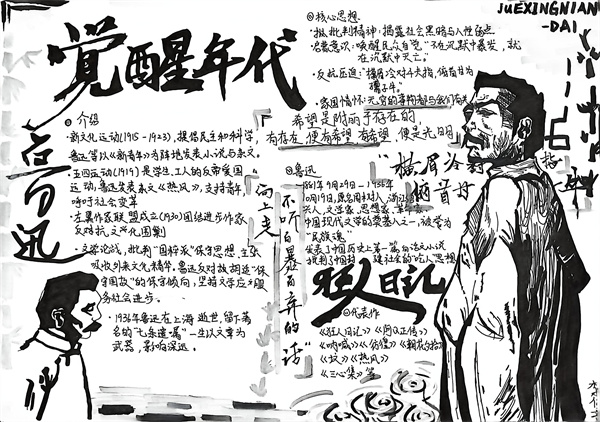 JUEXINGNIAN
-DAI
觉醒年代
鲁迅
◎介绍
·新文化运动(1915-1923),提倡民主和科学,
鲁迅等以《新青年》为阵地发表小说与杂文
·五四运动(1919)是学生、工人的反帝爱国
运动,鲁迅发表杂文《热风》,支持青年,
呼吁社会变革
·左翼作家联盟成立(1930)团结进步作家,
反对抗文化围剿
·文学论战,批判"国粹派"保守思想,主张
吸收外来文化精华,鲁迅反对
守国故"的保守倾向,坚持文学应为服
务社会进步.
·1936年鲁迅在上海逝世,留下著
名的"七条遗嘱"一生以文章为
武器,影响深远.
◎核心思想.
·批判精神:揭露社会黑暗与人性弱点
·启蒙意识:唤醒民众自觉"不在沉默中爆发,就
在沉默中灭亡."
·反抗压迫:"横眉冷对千夫指,俯首甘为
孺子牛."
·家国情怀:无穷的远方和人们都与我们有关
希望是附丽于存在的,
有存在,便有希望,有希望,便是光明
向上走
不听自暴自弃的话
"横眉冷对
俯首甘
◎鲁迅
1881年9月29日-1936年
10月19日,原名周树人,浙江
兴人,文学家、思想家、革命家
中国现代文学的奠基人之一,被誉为
"民族魂"
发表了中国历史上第一篇白话文小说
批判了中国封建社会的"吃人"思想
狂人日记
◎代表作
《狂人日记》《阿Q正传》
《呐喊》《彷徨》《朝花夕拾》
《坟》《热风》
《三心集》等